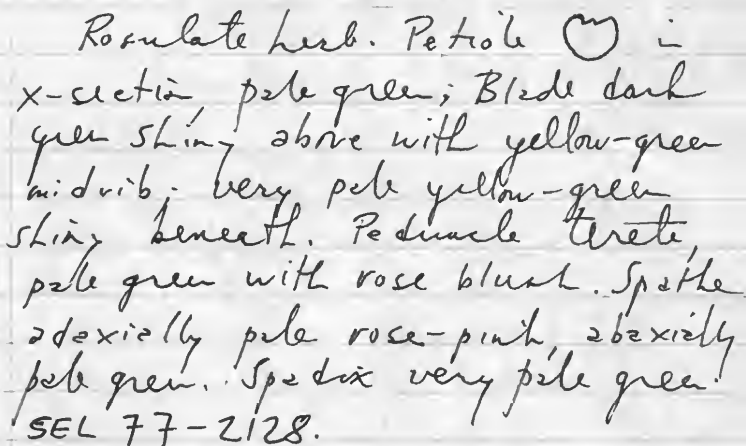 Rosulate herb. Petiole in
x-section, pale green; Blade dark
green shiny above with yellow-green
midrib; very pale yellow-green
shiny beneath. Peduncle terete,
pale green with rose blush. Spathe
adaxially pale rose-pink, abaxially
pale green. Spadix very pale green.
SEL 77-2128.